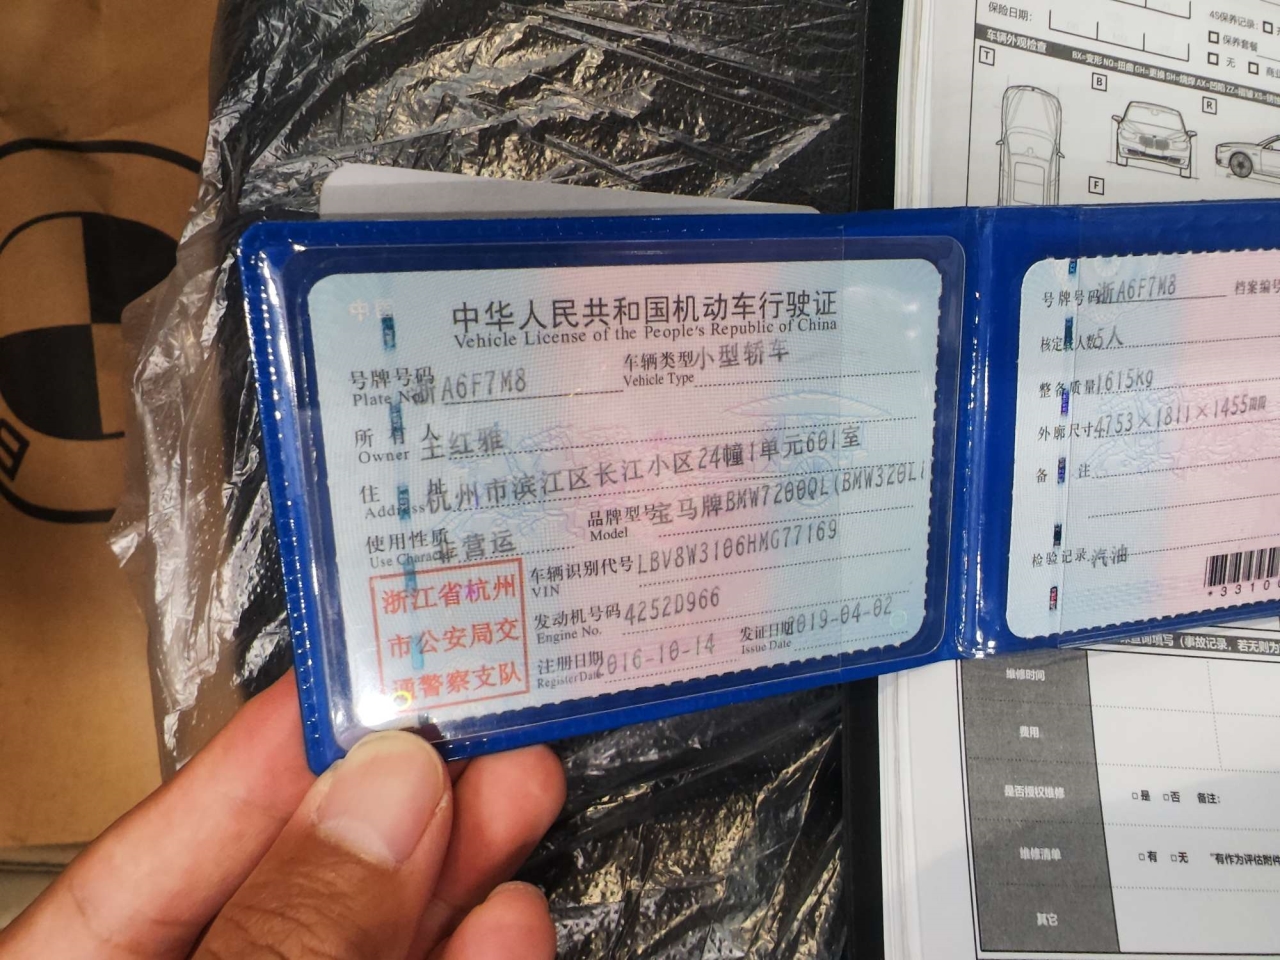 中华人民共和国机动车行驶证
Vehicle License of the People's Republic of China
号牌号码 浙A6F7M8 车辆类型 小型轿车
Plate No. Vehicle Type
所有人 王红雅
Owner
住址 杭州市滨江区长江小区24幢1单元601室
Address
使用性质 非营运 品牌型号 宝马牌BMW7200QL(BMW320L
Use Character Model
浙江省杭州
市公安局交
通警察支队
车辆识别代号 LBV8W3106HMG77169
VIN
发动机号码 4252D966
Engine No.
注册日期 2016-10-14 发证日期 2019-04-02
Register Date Issue Date
号牌号码 浙A6F7M8 档案编号
核定载人数 5人
整备质量 1615kg
外廓尺寸 4753×1811×1455mm
备注
检验记录 汽油
*3310
保险日期:
4S保养记录:
保养套餐
无
车辆外观检查
T
B
R
F
维修时间
费用
是否授权维修 □是 □否 备注:
维修清单 □有 □无 "有作为评估附件
其它